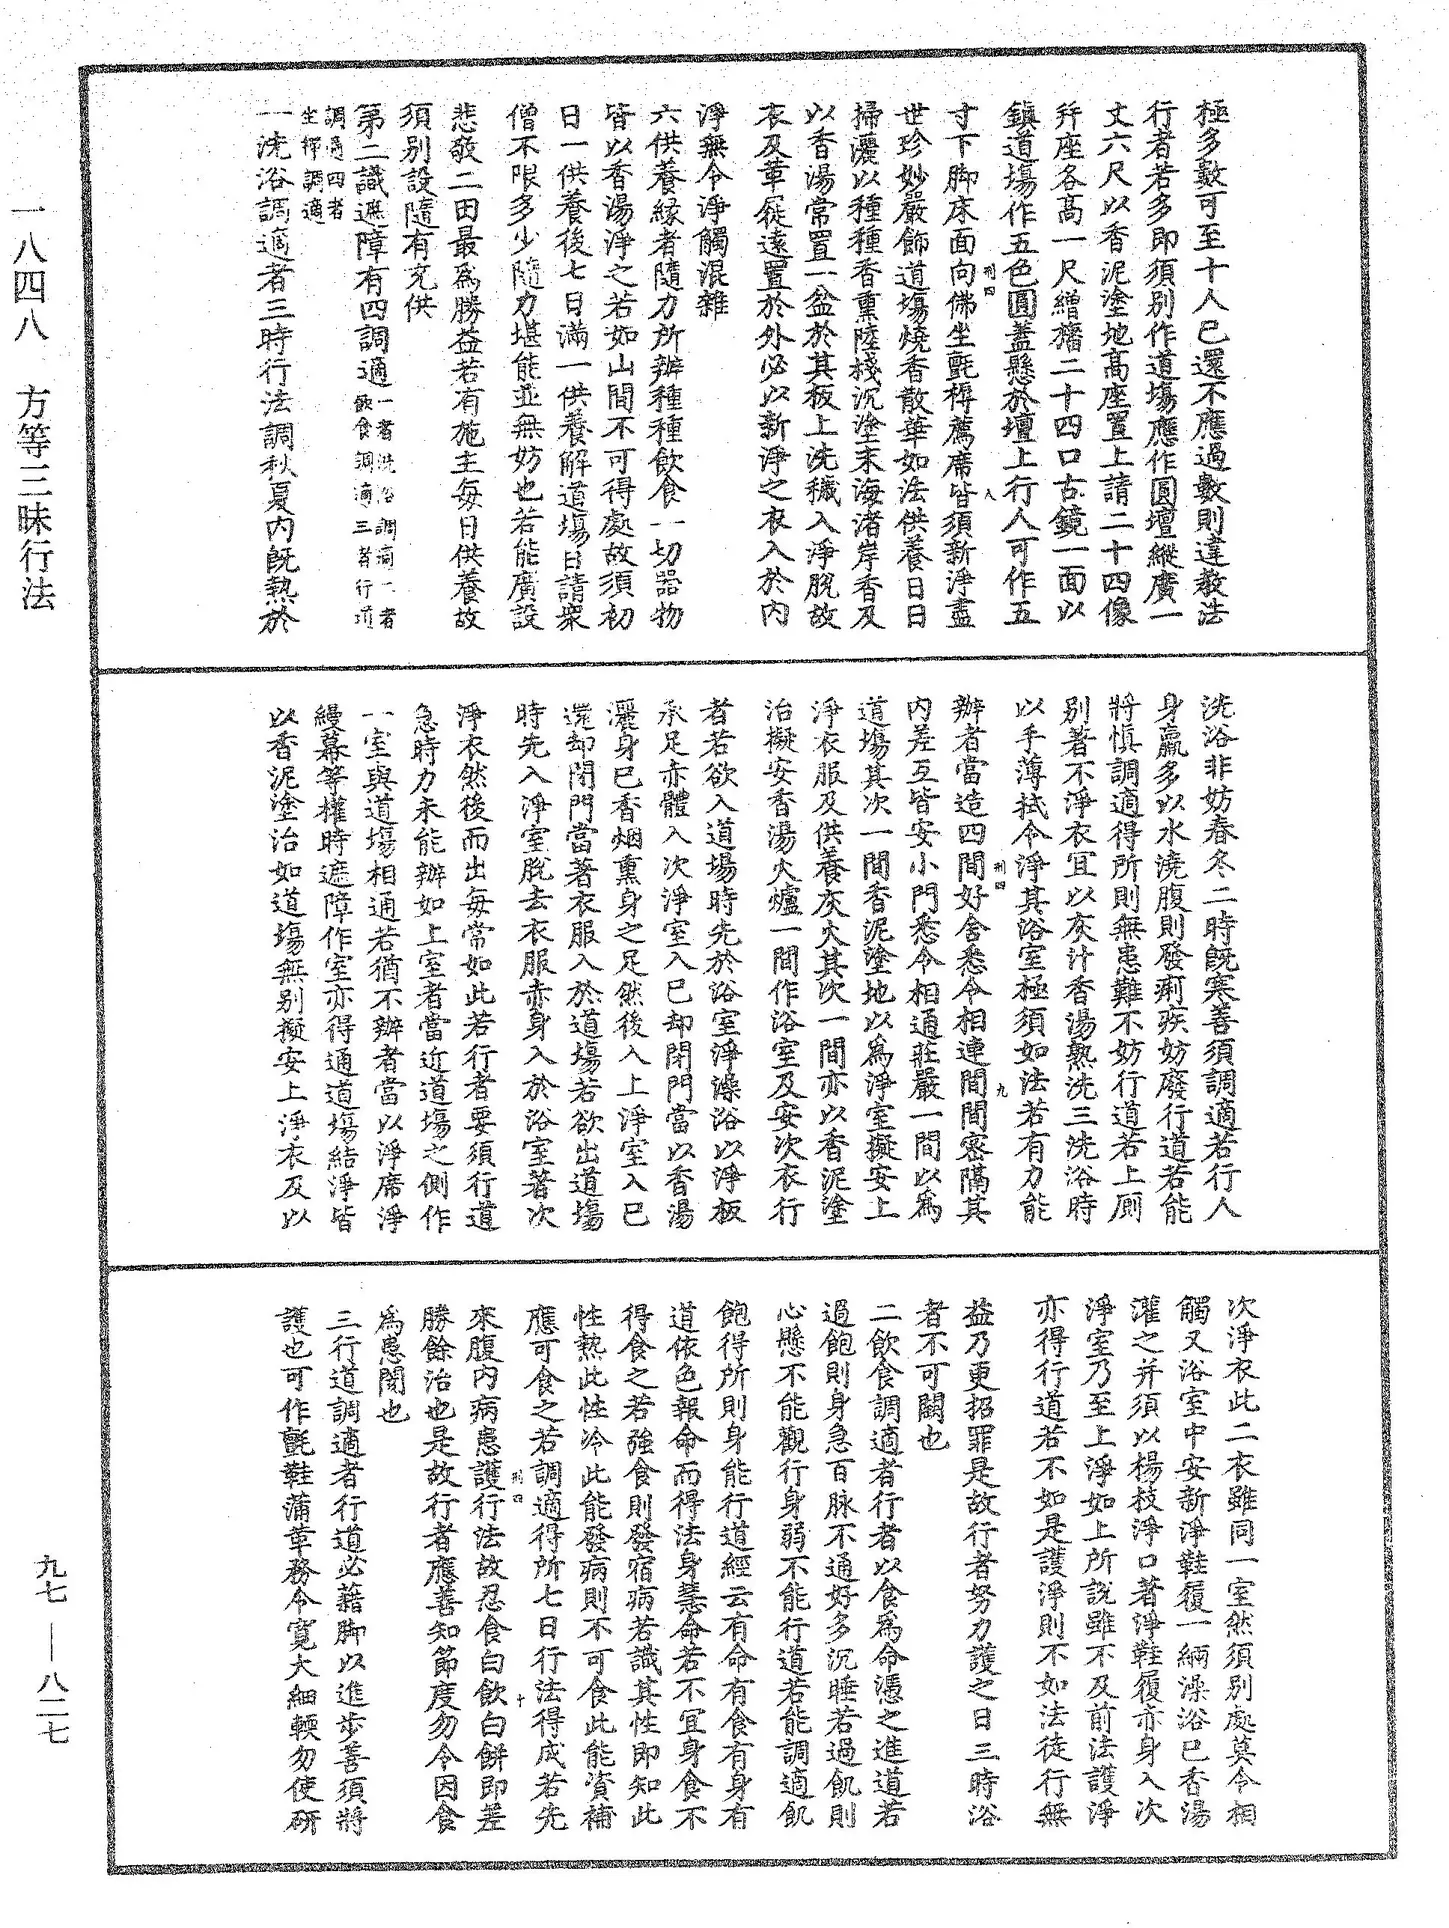 極多數可至十人已還不應過數則違教法
行者若多即須別作道場應作圓壇縱廣一
丈六尺以香泥塗地高座置上請二十四像
并座各高一尺繒旛二十四口古鏡一面以
鎮道場作五色圓蓋懸於壇上行人可作五
寸下脚床面向佛坐氈褥薦席皆須新淨盡
世珍妙嚴飾道場燒香散華如法供養日日
掃灑以種種香熏陸棧沉塗末海渚岸香及
以香湯常置一盆於其板上洗穢入淨脫故
衣及革屣遠置於外必以新淨之衣入於內
淨無令淨觸混雜
六供養緣者隨力所辦種種飲食一切器物
皆以香湯淨之若如山間不可得處故須初
日一供養後七日滿一供養解道場日請衆
僧不限多少隨力堪能並無妨也若能廣設
悲敬二田最爲勝益若有施主每日供養故
須別設隨有充供
第二識遮障有四調適一者洗浴調適二者
飲食調適三者行道
調適四者
坐禪調適
一洗浴調適者三時行法調秋夏內旣熱於
洗浴非妨春冬二時旣寒善須調適若行人
身羸多以水澆腹則發痢疾妨廢行道若能
將慎調適得所則無患難不妨行道若上厠
別著不淨衣宜以灰汁香湯熟洗三洗浴時
以手薄拭令淨其浴室極須如法若有力能
辦者當造四間好舍悉令相連間間密隔其
內差互皆安小門悉令相通莊嚴一間以爲
道場其次一間香泥塗地以爲淨室擬安上
淨衣服及供養灰火其次一間亦以香泥塗
治擬安香湯火爐一間作浴室及安次衣行
者若欲入道場時先於浴室淨澡浴以淨板
承足赤體入次淨室入已却閉門當以香湯
灑身已香烟熏身之足然後入上淨室入已
還却閉門當著衣服入於道場若欲出道場
時先入淨室脫去衣服赤身入於浴室著次
淨衣然後而出每常如此若行者要須行道
急時力未能辦如上室者當近道場之側作
一室與道場相通若猶不辦者當以淨席淨
縵幕等權時遮障作室亦得通道場結淨皆
以香泥塗治如道場無別擬安上淨衣及以
次淨衣此二衣雖同一室然須別處莫令相
觸又浴室中安新淨鞋履一緉澡浴已香湯
灌之并須以楊枝淨口著淨鞋履亦身入次
淨室乃至上淨如上所說雖不及前法護淨
亦得行道若不如是護淨則不如法徒行無
益乃更招罪是故行者努力護之日三時浴
者不可闕也
二飲食調適者行者以食爲命憑之進道若
過飽則身急百脉不通好多沉睡若過飢則
心懸不能觀行身弱不能行道若能調適飢
飽得所則身能行道經云有命有食有身有
道依色報命而得法身慧命若不宜身食不
得食之若強食則發宿病若識其性即知此
性熱此性冷此能發病則不可食此能資補
應可食之若調適得所七日行法得成若先
來腹內病患護行法故忍食白飲白餅即差
勝餘治也是故行者應善知節度勿令因食
爲患閡也
三行道調適者行道必藉脚以進步善須將
護也可作氈鞋蒲華務令寬大細輭勿使研
刑四
八
刑四
九
刑四
十
一八四八　方等三昧行法
九七—八二七